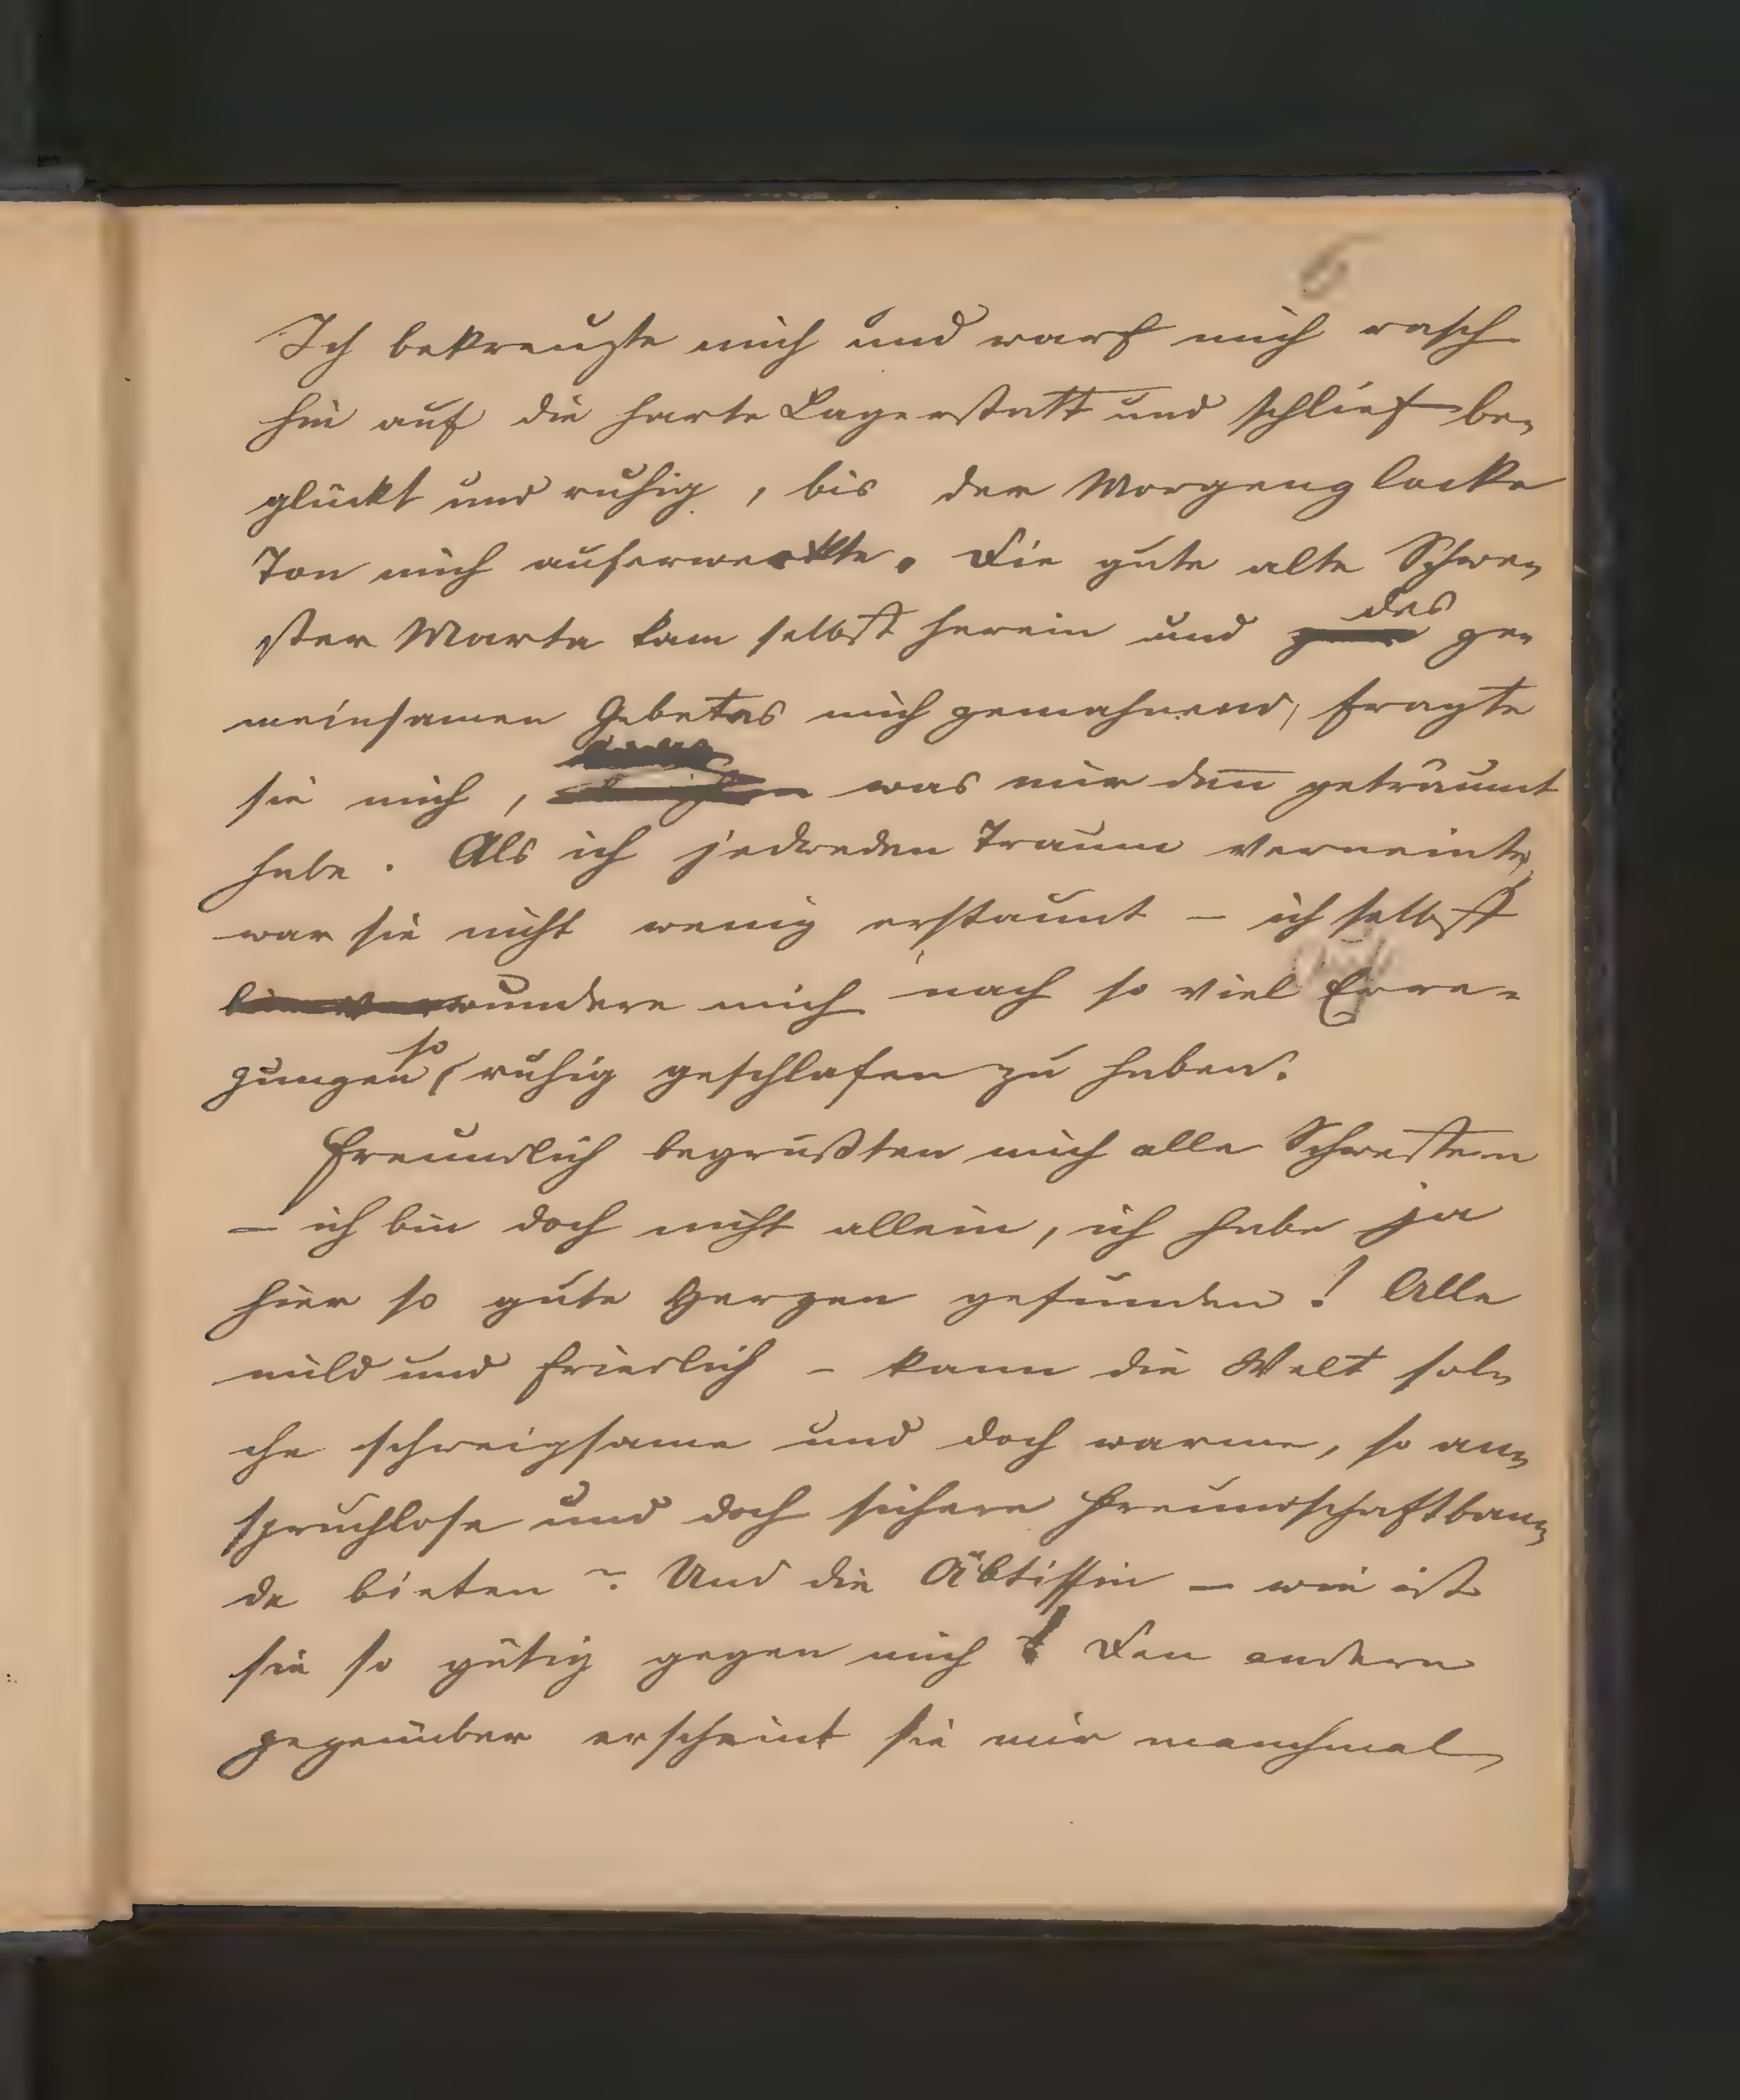 6
Ich bekreuzte mich und warf mich rasch
hin auf die harte Lagerstatt und schlief be-
glückt und ruhig, bis der Morgenglocke
Ton mich auferweckte. Die gute alte Schwe-
ster Marta kam selbst herein und des ge-
meinsamen Gebetes mich gemahnend, fragte
sie mich, was mir denn geträumt
habe. Als ich jedweden Traum verneinte,
war sie nicht wenig erstaunt – ich selbst
wundere mich nach so viel Erre-
gungen so ruhig geschlafen zu haben.
Freundlich begrüßten mich alle Schwestern
– ich bin doch nicht allein, ich habe ja
hier so gute Herzen gefunden! Alle
mild und friedlich – kann die Welt sol-
che schweigsame und doch warme, so an-
spruchlose und doch sichere Freundschaftban-
de bieten? Und die Äbtissin – wie ist
sie so gütig gegen mich! Den andern
gegenüber erscheint sie mir manchmal,